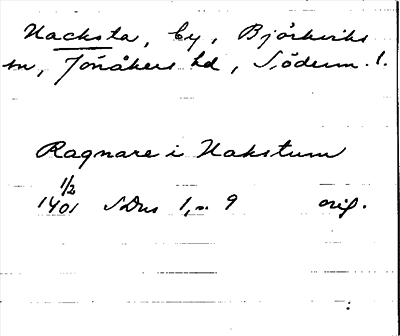 Nacksta, by, Björkviks
sn, Jönåkers hd, Söderm. l.
Ragnare i Nakstum
1/2
1401 SDns 1, s. 9 orig.